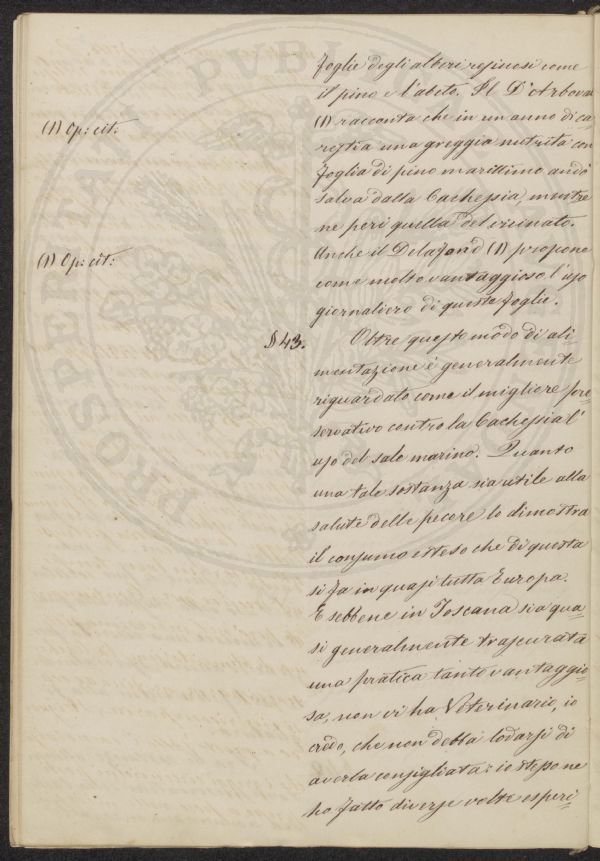 foglie degli alberi resinosi come
il pino e l'abeto. Il D'Arboval
(1) Op: cit:
(1) racconta che in un anno di ca-
restia una greggia nutrita con
foglia di pino marittimo andò
salva dalla Cachessia, mentre
ne perì quella del vicinato.
(1) Op: cit:
Anche il Delafond (1) propone
come molto vantaggioso l'uso
giornaliero di queste foglie.
§ 43.
Oltre questo modo di ali-
mentazione è generalmente
riguardato come il migliore pre-
servativo contro la Cachessia l'
uso del sale marino. Quanto
una tale sostanza sia utile alla
salute delle pecore lo dimostra
il consumo esteso che di questa
si fa in quasi tutta Europa.
E sebbene in Toscana sia qua-
si generalmente trascurata
una pratica tanto vantaggio-
sa, non vi ha Veterinario, io
credo, che non debba lodarsi di
averla consigliata: io stesso ne
ho fatto diverse volte esperi-